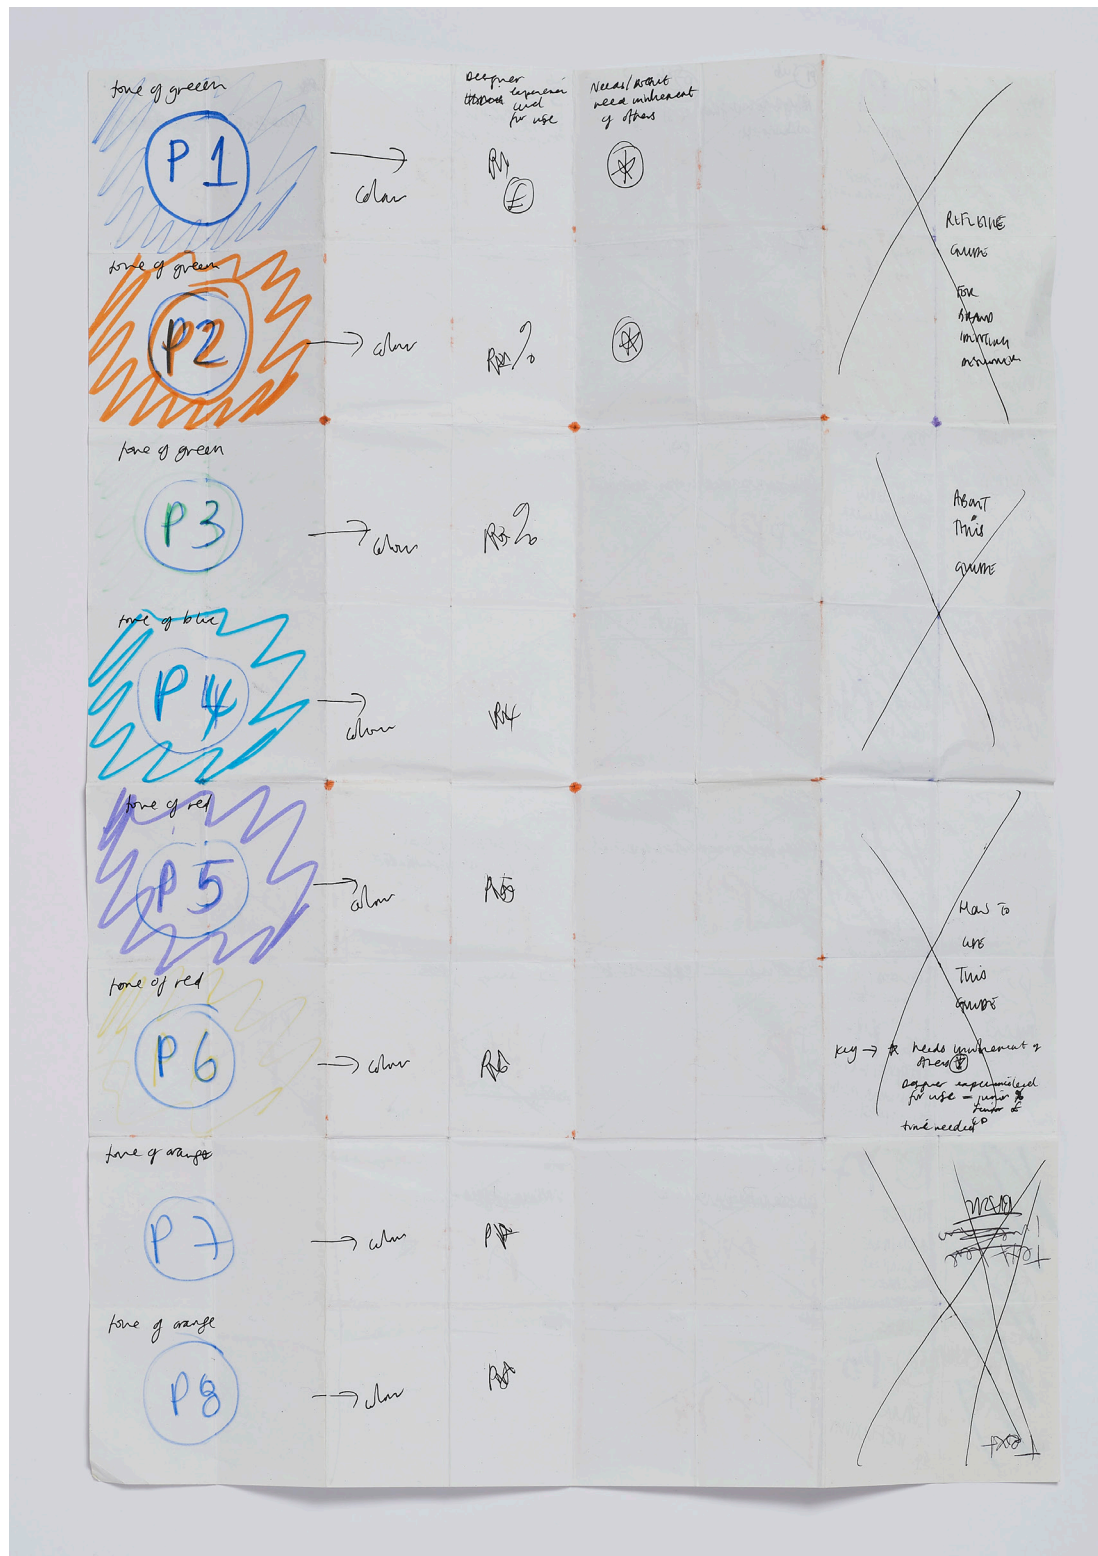 tone of greeen
P1
colour
Designer
experience
level
for use
£
Needs/doesnt
need involvement
of others
tone of green
P2
colour
%
tone of green
P3
colour
%
tone of blue
P4
colour
R4
tone of red
P5
colour
tone of red
P6
colour
tone of orange
P7
colour
tone of orange
P8
colour
REFLECTIVE
GUIDE
FOR
BRAND
ABOUT
THIS
GUIDE
HOW TO
USE
THIS
GUIDE
Key → * needs involvement of
others
Designer experience level
for use = junior %
Senior £
time needed
TEXT